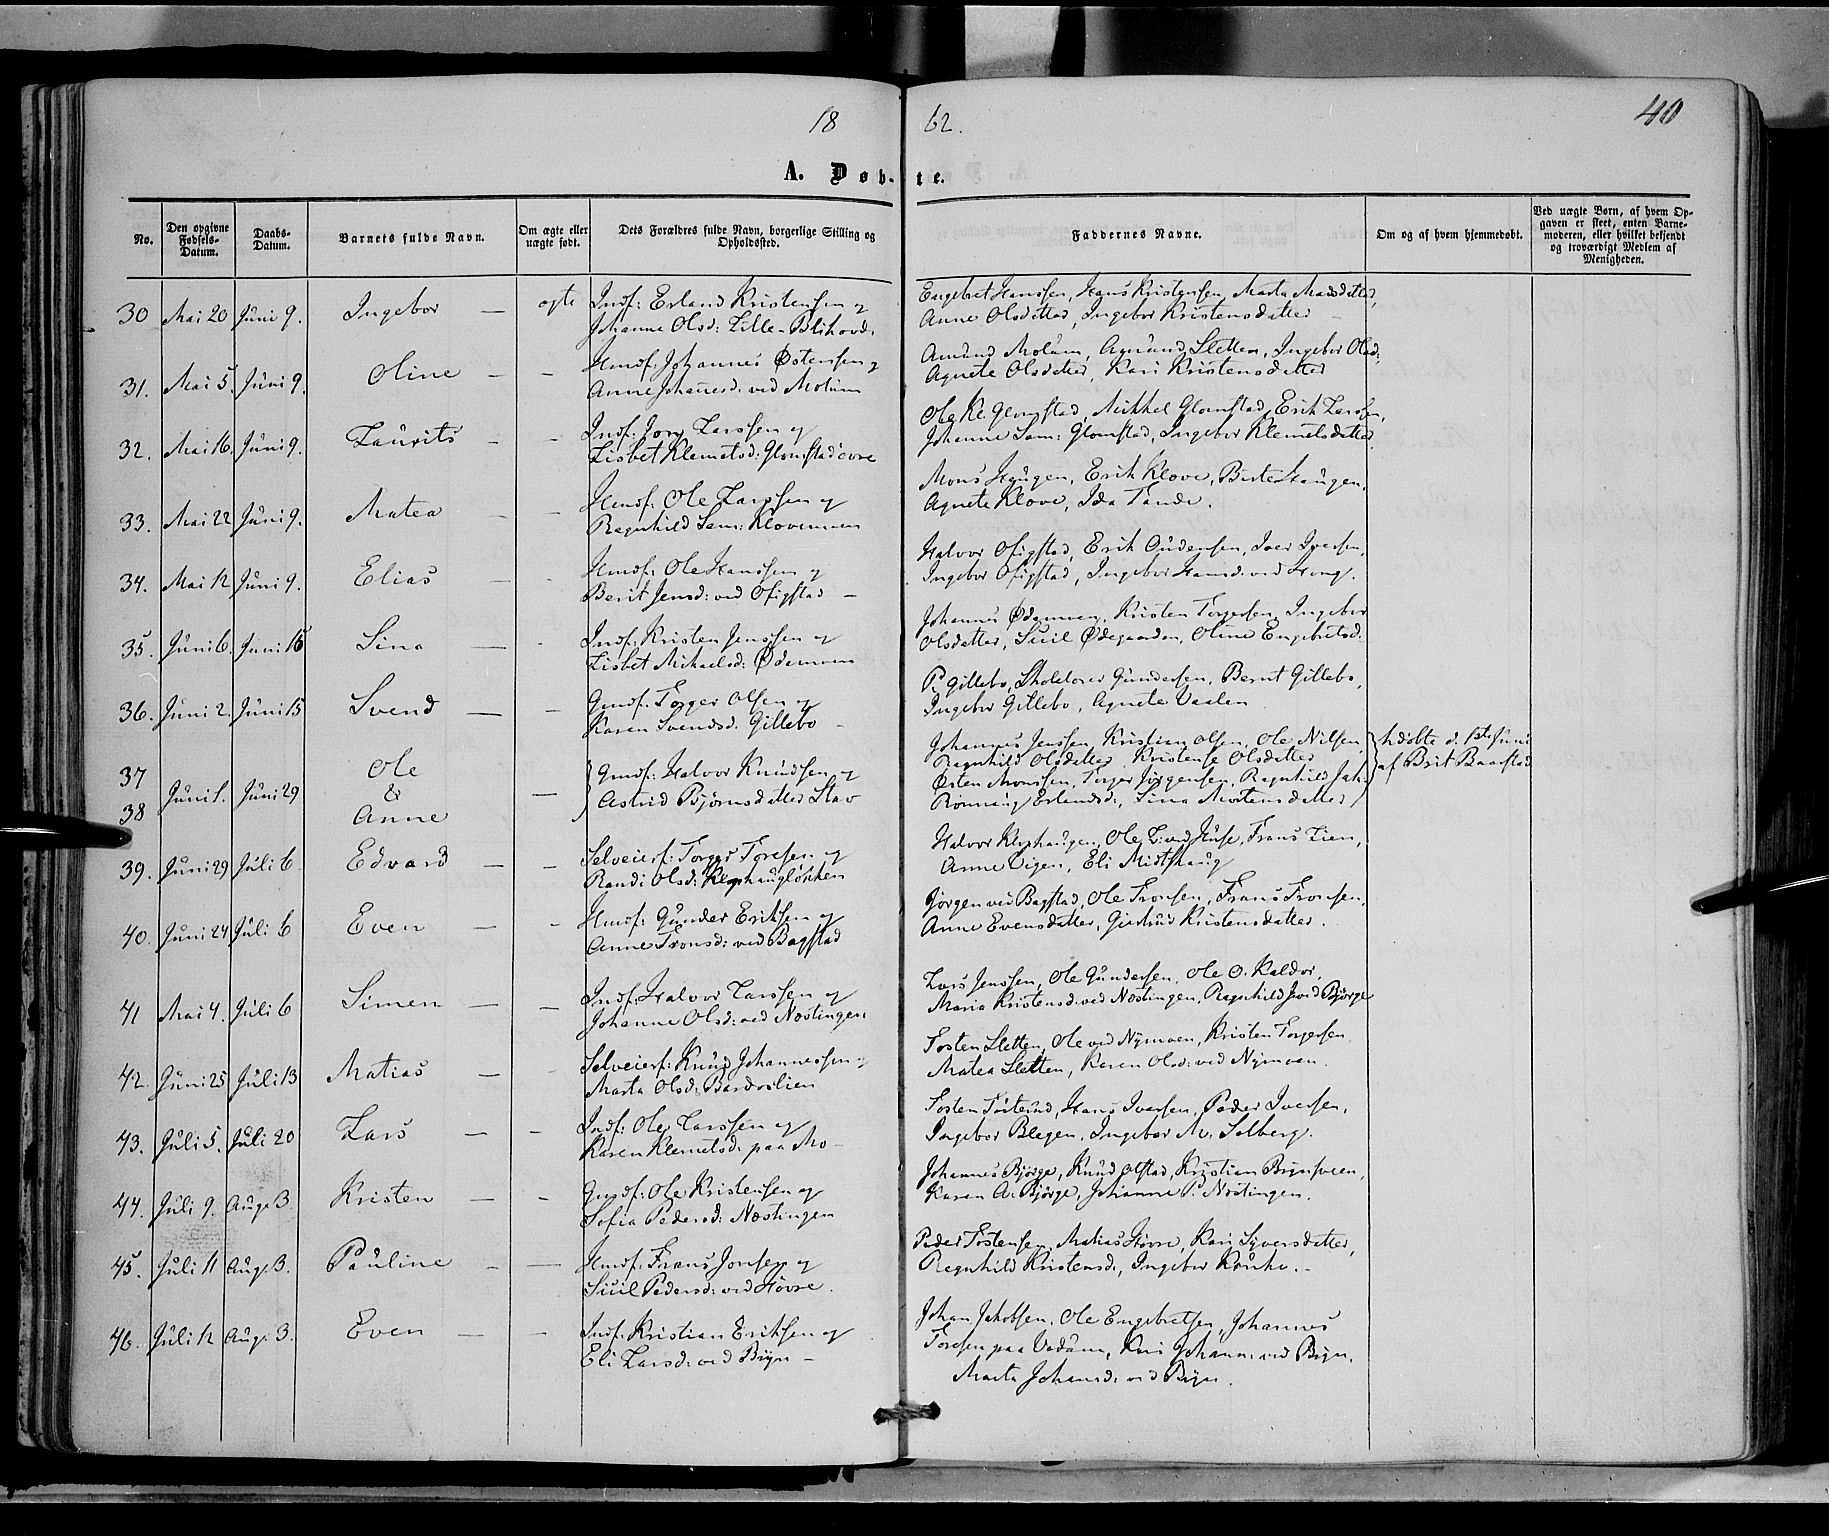 18 62.
40
A. Døb- te.
No.
Den opgivne Fødsels-Datum.
Daabs-Datum.
Barnets fulde Navn.
Om ægte eller uægte født.
Dets Forældres fulde Navn, borgerlige Stilling og Opholdssted.
Faddernes Navne.
Om og af hvem hjemmedøbt.
Ved uægte Børn, af hvem Opgaven er skeet, enten Barnemoderen, eller hvilket bekjendt og troværdigt Medlem af Menigheden.
30 Mai 20 Juni 9. Ingebor — ægte Inds: Erland Kristensen og
Johanne Olsd: Lille-
Engebret Hanssen, Hans Kristensen, Marta
Anne Olsdatter, Ingebor Kristensdatter
31. Mai 5. Juni 9. Oline — — Husmf: Johannes Østensen og
Anne Johannesd: ved Molum
Amund Molum, Amund Sletten, Ingebor Olsd:
Agnete Olsdatter, Kari Kristensdatter
32. Mai 16. Juni 9. Laurits — — Inds: Larssen og
Lisbet Klemetsd: Glomstad øvre
Ole Glomstad, Mikkel Glomstad, Erik Larssen,
Johanne Sam: Glomstad, Ingebor Klemetsdatter
33. Mai 22 Juni 9. Matea — — Husmf: Ole Larssen og
Ragnhild Sam: Klovemoen
Mons Haugen, Erik Klove, Birte Haugen,
Agnete Klove, Ida Tande.
34. Mai 12 Juni 9. Elias — — Husmf: Ole Hanssen og
Berit Jensd: ved Ofigstad —
Halvor Ofigstad, Erik Audensen, Iver Iversen,
Ingebor Ofigstad, Ingebor Hansd: ved
35. Juni 6. Juni 15 Sina — - Inds: Kristen Jenssen og
Lisbet Mikaelsd: Ødemoen
Johannes Ødemoen, Kristen Torgersen, Ingebor
Olsdatter, Siril Ødegaarden, Oline Engebretsd.
36. Juni 2. Juni 15 Svend — — Gmdf: Torger Olsen og
Karen Svendsd. Gillebo —
P. Gillebo, Skolelærer Gundersen, Bernt Gillebo,
Ingebor Gillebo, Agnete Vaalen
37
38 Juni 1. Juni 29 Ole
&
Anne — Gmdf: Halvor Knudsen og
Astrid Bjørnsdatter Stav
Johannes Jenssen, Kristian Olsen, Ole Nilsen,
Ragnhild Olsdatter, Kristense Olsdatter
Østen Monssen, Torger Jørgensen, Ragnhild
Rønnaug Erlandsd:, Sina Mortensdatter
hdøbte d. 1ste Juni
af Brit Baarstad
39. Juni 29 Juli 6 Edvard — — Selveierf: Torger Toresen og
Randi Olsd: Klophaugløkken
Halvor Klophaugen, Ole ved Huse, Frans Lien,
Anne Eigen, Eli Midtskaug
40. Juni 24 Juli 6 Even — - Husmf: Gunder Eriksen og
Anne Tronsd: ved Bagstad
Jørgen ved Bagstad, Ole Tronsen, Frans Tronsen,
Anne Evensdatter, Gjertrud Kristensdatter.
41 Mai 4. Juli 6 Simen — — Inds: Halvor Larssen og
Johanne Olsd: ved Næstingen
Lars Jenssen, Ole Gundersen, Ole O. Kaldor,
Maria Kristensd: ved Næstingen, Ragnhild J. ved Bjørge
42 Juni 25 Juli 13 Matias — - Selveierf: Knud Johannessen og
Marta Olsd: Bardoslien
Tosten Sletten, Ole ved Nymoen, Kristen Torgersen,
Matea Sletten, Karen Olsd: ved Nymoen.
43. Juli 5. Juli 20 Lars — - Inds: Ole Larssen og
Karen Klemetsd: paa Mo —
Tosten Hans Iversen, Peder Iversen,
Ingebor Blegen, Ingebor M. Solberg.
44. Juli 9. Aug. 3 Kristen — - Gmdf: Ole Kristensen og
Sofia Pedersd: Næstingen
Johannes Bjørge, Knud Olstad, Kristian
Karen A. Bjørge, Johanne P. Næstingen.
45. Juli 11 Aug. 3. Pauline - — Husmf: Frans Jonsen og
Siril Pedersd: ved Høvre.
Peder Tostensen, Matias Høvre, Kari Syversdatter,
Ragnhild Kristensd:, Ingebor
46. Juli 12 Aug. 3. Even — — Inds: Kristian Eriksen og
Eli Larsd: ved Byn —
Johan Jakobsen, Ole Engebretsen, Johannes
Toresen paa Vadum, Kari Johann: ved Byn,
Marta Johansd: ved Byn.